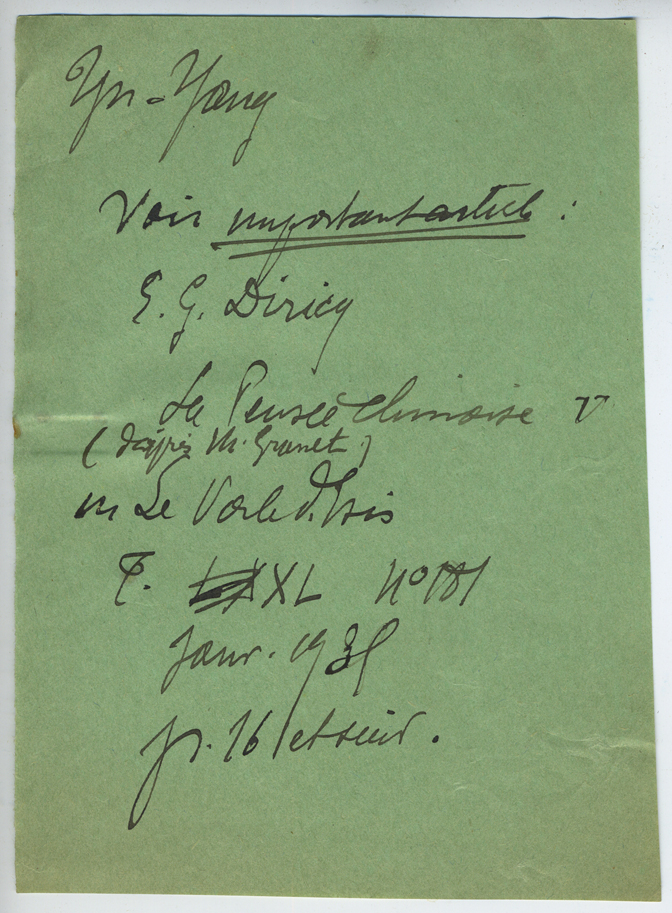 Yn-Yang
Voir important article :
E. G. Diricq
La Pensée chinoise V
(d'après M. Granet)
in Le Voile d'Isis
T. XL N° 181
Janv. 1935
p. 16 et suiv.